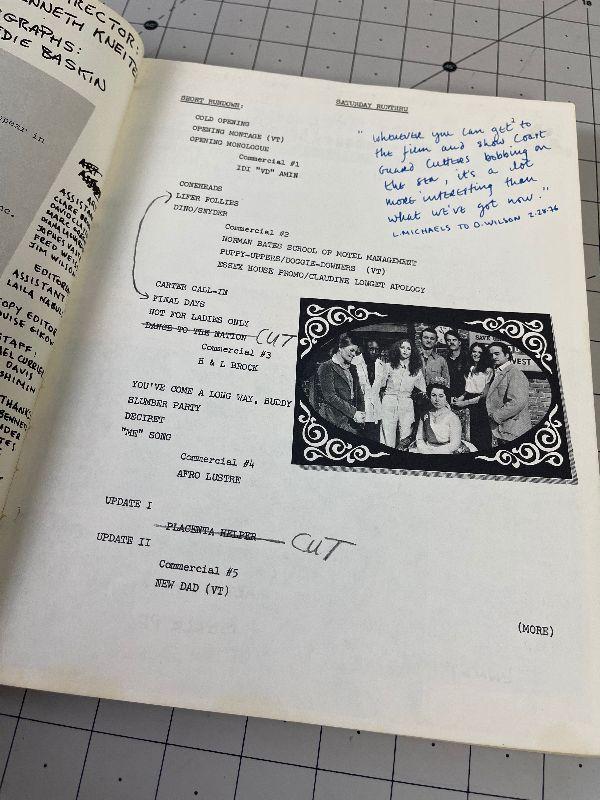 DIRECTOR:
KENNETH KNEITEL
GRAPHS:
EDIE BASKIN
appear in
ART
ASSISTANT
EDITORI
ASSISTANT
LAILA NABUL
COPY EDITOR
STAFF:
DAVIS
THANKS
SHORT RUNDOWN:
SATURDAY RUNTHRU
COLD OPENING
OPENING MONTAGE (VT)
OPENING MONOLOGUE
Commercial #1
IDI "VD" AMIN
"Whenever you can get to
the film and show Coast
Guard Cutters bobbing on
the sea, it's a lot
more interesting than
what we've got now."
L. MICHAELS TO D. WILSON 2.28.76
CONEHEADS
LIFER FOLLIES
DINO/SNYDER
Commercial #2
NORMAN BATES SCHOOL OF MOTEL MANAGEMENT
PUPPY-UPPERS/DOGGIE-DOWNERS (VT)
ESSEX HOUSE PROMO/CLAUDINE LONGET APOLOGY
CARTER CALL-IN
FINAL DAYS
HOT FOR LADIES ONLY
DANCE TO THE NATION CUT
Commercial #3
H & L BROCK
YOU'VE COME A LONG WAY, BUDDY
SLUMBER PARTY
DECIBET
"ME" SONG
Commercial #4
AFRO LUSTRE
UPDATE I
PLACENTA HELPER CUT
UPDATE II
Commercial #5
NEW DAD (VT)
(MORE)